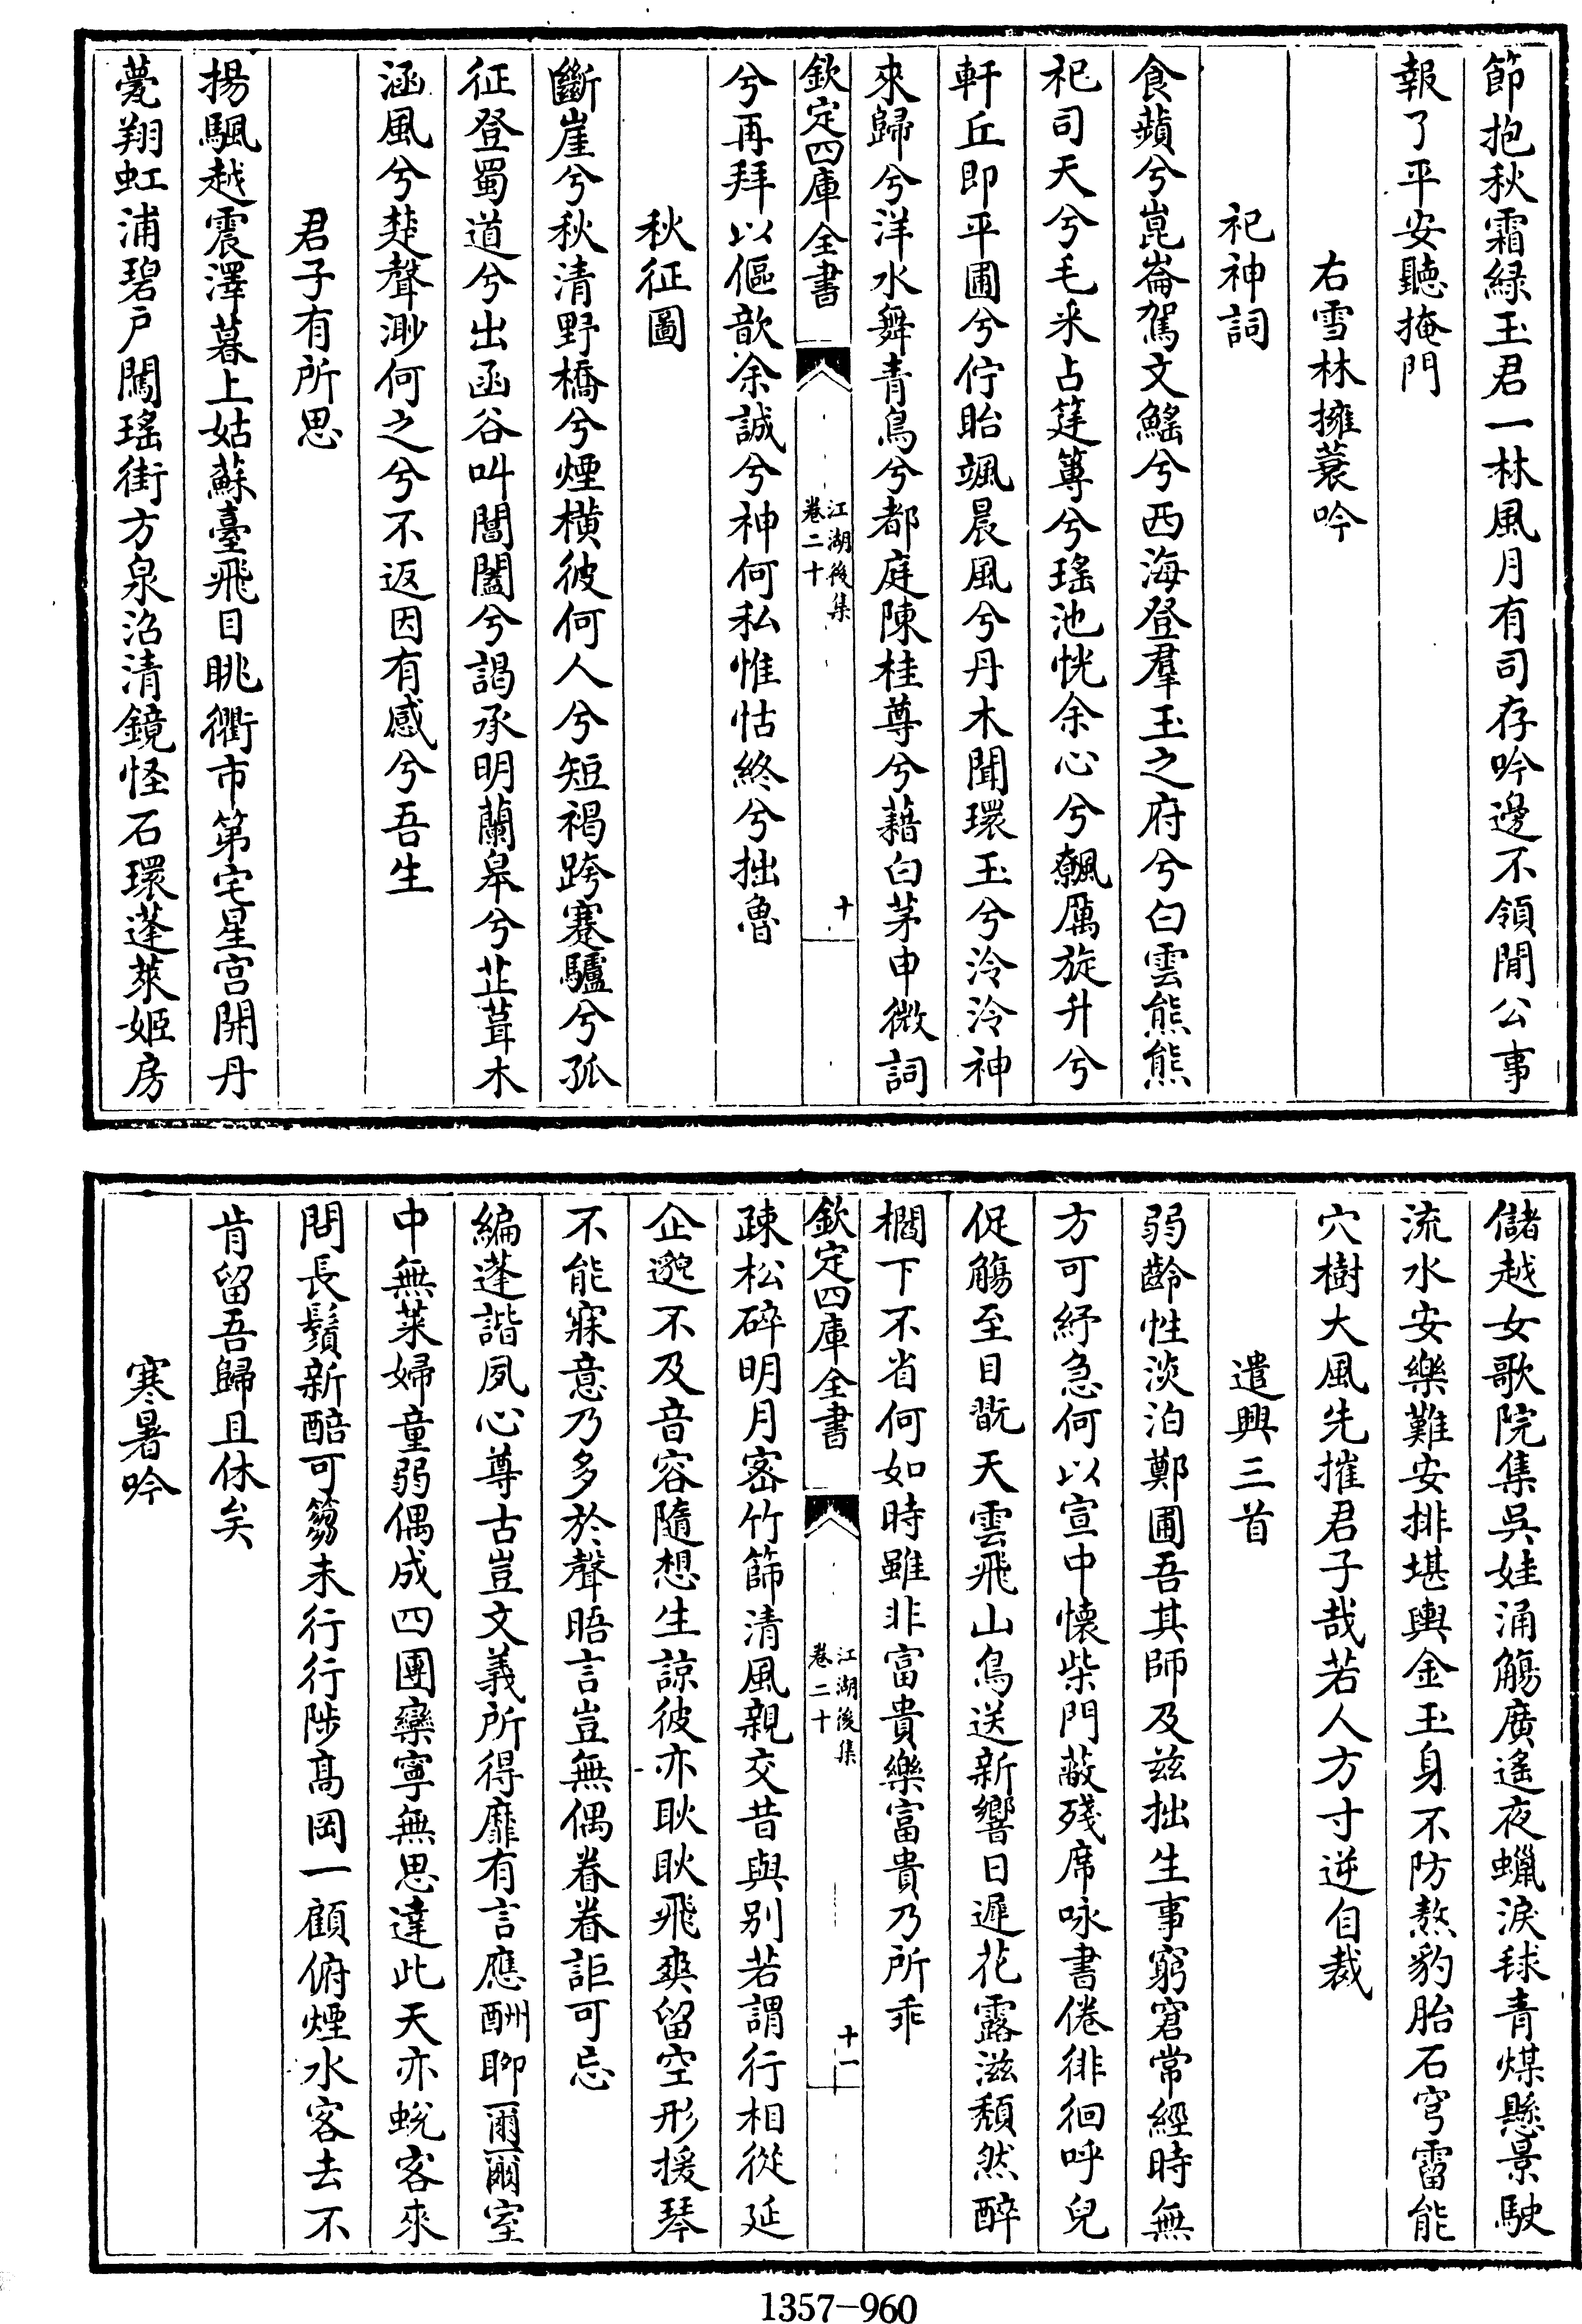 節抱秋霜緑玉君一林風月有司存吟邊不領閒公事
報了平安聽掩門
右雪林擁蓑吟
祀神詞
食蘋兮崑崙駕文鰩兮西海登羣玉之府兮白雲熊熊
祀司天兮毛采占筳篿兮瑤池恍余心兮飄厲旋升兮
軒丘即平圃兮佇眙颯晨風兮丹木聞環玉兮泠泠神
來歸兮洋水舞青鳥兮都庭陳桂尊兮藉白茅申微詞
欽定四庫全書
江湖後集
卷二十
十
兮再拜以傴歆余誠兮神何私惟怙終兮拙魯
秋征圖
斷崖兮秋清野橋兮煙橫彼何人兮短褐跨蹇驢兮孤
征登蜀道兮出函谷叫閶闔兮謁承明蘭皋兮芷葺木
涵風兮楚聲渺何之兮不返因有感兮吾生
君子有所思
揚颿越震澤暮上姑蘇臺飛目眺衢市第宅星宫開丹
甍翔虹浦碧戶闖瑤街方泉沿清鏡怪石環蓬萊姬房
儲越女歌院集吳娃涌觴廣遙夜蠟淚毬青煤懸景駛
流水安樂難安排堪輿金玉身不防熬豹胎石穹霤能
穴樹大風先摧君子哉若人方寸逆自裁
遣興三首
弱齡性淡泊鄭圃吾其師及兹拙生事窮窘常經時無
方可紓急何以宣中懷柴門蔽殘席咏書倦徘徊呼兒
促觴至目翫天雲飛山鳥送新響日遲花露滋頹然醉
櫩下不省何如時雖非富貴樂富貴乃所乖
欽定四庫全書
江湖後集
卷二十
十一
疎松碎明月宻竹篩清風親交昔與别若謂行相從延
企邈不及音容隨想生諒彼亦耿耿飛爽留空形援琴
不能寐意乃多於聲晤言豈無偶眷眷詎可忘
編蓬諧夙心尊古豈文義所得靡有言應酬聊爾爾室
中無萊婦童弱偶成四團欒寧無思達此天亦蛻客來
問長鬚新醅可篘未行行陟髙岡一顧俯煙水客去不
肯留吾歸且休矣
寒暑吟
1357—960